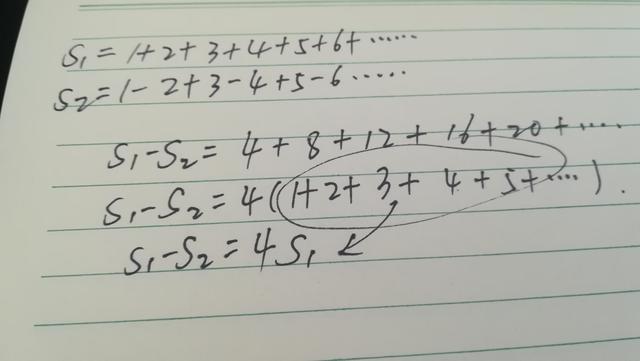 S₁ = 1+2+3+4+5+6+······
S₂ = 1-2+3-4+5-6·····
S₁-S₂ = 4+8+12+16+20+····
S₁-S₂ = 4(1+2+3+4+5+····).
S₁-S₂ = 4S₁